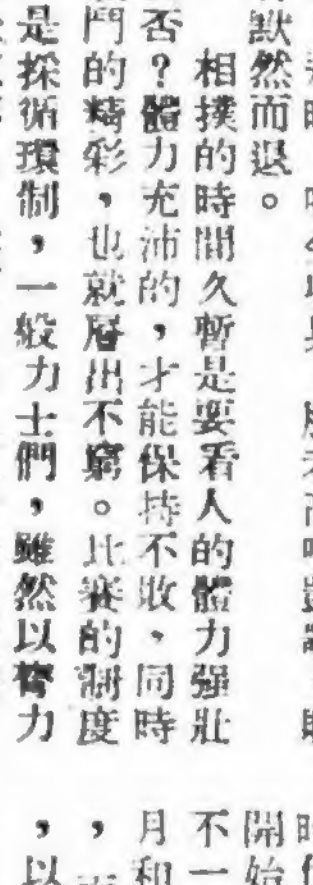 默然而退。
相撲的時間久暫是要看人的體力强壯
否？體力充沛的，才能保持不敗。同時
鬥的精彩，也就層出不窮。比賽的制度
是採循環制，一般力士們，雖然以奮力
開始
不一
月和
，
，以